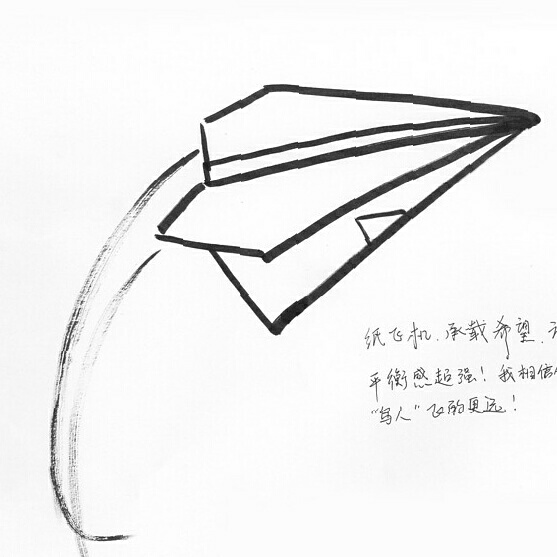 纸飞机.承载希望.
平衡感超强！我相信
“鸟人”飞的更远！